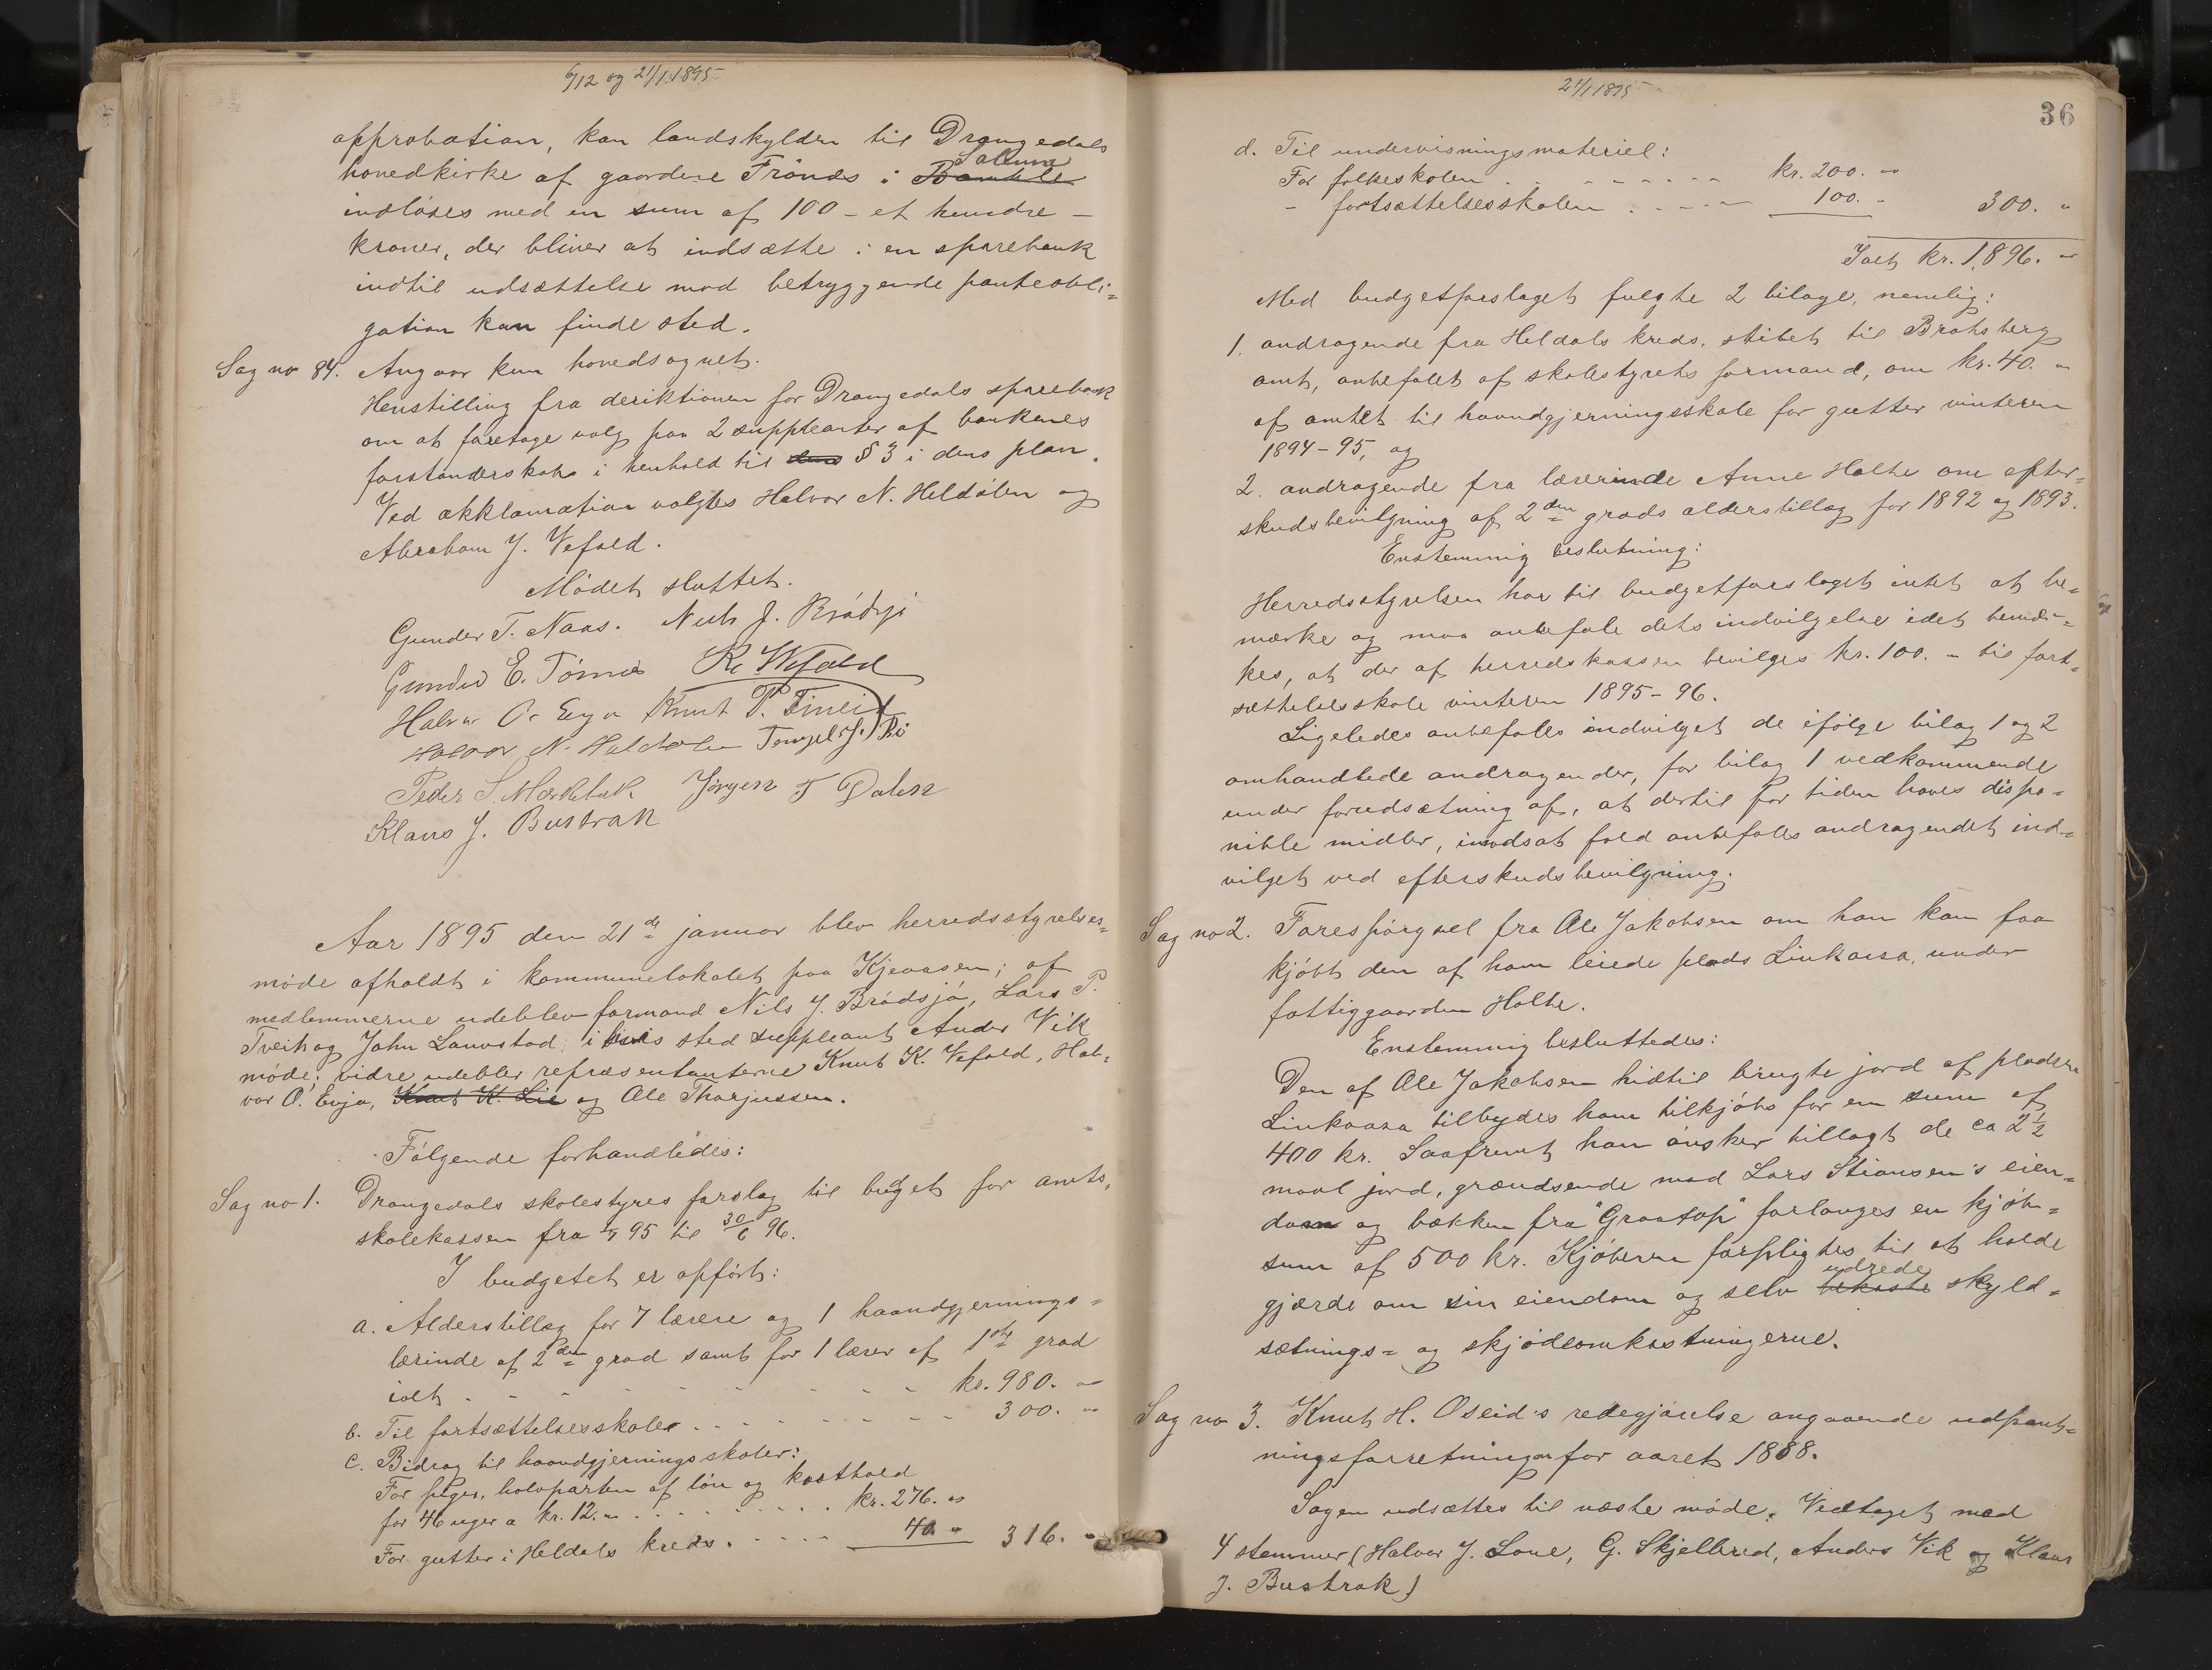 6/12 og 21/1 1895
approbation, kan landskylden til Drangedals
hovedkirke af gaardene Trönes i Bamble Solum
indlöses med en sum af 100 – et hundre –
kroner, der bliver at indsætte i en sparebank
indtil udsættelse mod betryggende panteobli=
gation kan finde sted.
Sag no 84. Angaar kun hovedsognet.
Henstilling fra deriktionen for Drangedals sparebank
om at foretage valg paa 2 suppleanter af bankenes
forstanderskab i henhold til dens § 3 i dens plan.
Ved akklamation valgtes Halvor N. Heldalen og
Abraham J. Vefald.
Mödet sluttet.
Gunder T. Naas. Nils J. Brödsjö
Gunder E. Törnes K. Wefald
Halvor O. Evja Knut P. Tveit
Halvor N. Heldalen Tengels J. Bö
Peder S. Mærkebæk Jörgen T Dalen
Klaus J. Bustrak
Aar 1895 den 21de januar blev herredsstyrelses=
möde afholdt i kommunelokalet paa Kjevaasen; af
medlemmerne udeblev formand Nils J. Brödsjö, Lars P.
Tveit og John Lauvstad i hvis sted suppleant Anders Vik
möde; vidre udeblev repræsentanterne Knut K. Vefald, Hal=
vor O. Evja, Knut K. Lie og Ole Thorjussen.
Fölgende forhandledes:
Sag no 1. Drangedals skolestyres forslag til buget for amts=
skolekassen fra 1/7 95 til 30/6 96.
I budgetet er opfört:
a. Alderstillæg for 7 lærere og 1 haandgjernings=
lærinde af 2den grad samt for 1 lærer af 1ste grad
ialt . . . kr. 980. "
b. Til fortsættelsesskoler . . . 300. "
c. Bidrag til haandgjerningsskoler:
For piger, halvparten af lön og kosthold
for 46 uger a kr. 12. " . . . kr. 276. "
For gutter i Heldals kreds . . . 40 " 316. "
21/1 1895
36
d. Til undervisningsmateriel:
For folkeskolen . . . kr. 200. "
– fortsættelsesskolen . . . 100. " 300. "
Ialt kr. 1,896. "
Med budgetforslaget fulgte 2 bilage, nemlig:
1. andragende fra Heldals kreds, stilet til Bratsberg
amt, anbefalet af skolestyrets formand, om kr. 40. "
af amtet til haandgjerningsskole for gutter vinteren
1894–95, og
2. andragende fra lærerinde Anne Holte om efter=
skudsbevilgning af 2den grads alderstillæg for 1892 og 1893.
Enstemmig beslutning:
Herredsstyrelsen har til budgetforslaget intet at be=
mærke og maa anbefale dets indvilgelse idet bemær=
kes, at der af herredskassen bevilges kr. 100. – til fort=
sættelsesskole vinteren 1895–96.
Ligeledes anbefales indvilget de ifölge bilag 1 og 2
omhandlede andragender, for bilag 1 vedkommende
under forudsætning af, at dertil for tiden haves dispo=
nible midler, imodsat fald anbefales andragendet ind=
vilget ved efterskudsbevilgning.
Sag no 2. Forespörgsel fra Ole Jakobsen om han kan faa
kjöbt den af ham leiede plads Linkaasa, under
fattiggaarden Holte.
Enstemmig besluttedes:
Den af Ole Jakobsen hidtil brugte jord af pladsen
Linkaasa tilbydes ham tilkjöbs for en sum af
400 kr. Saafremt han önsker tillagt de ca 2 1/2
maal jord, grændsende mod Lars Stiansen's eien=
dom og bækken fra "Graatop" forlanges en kjöbe=
sum af 500 kr. Kjöberen forpligtes til at holde
gjærde om sin eiendom og selv bekoste udrede skyld=
sætnings= og skjödeomkostningerne.
Sag no 3. Knut H. Oseid's redegjörelse angaaende udpant=
ningsforretninger for aaret 1888.
Sagen udsættes til næste möde. Vedtaget med
4 stemmer (Halvor J. Lone, G. Skjelbred, Anders Vik og Klaus
J. Bustrak)